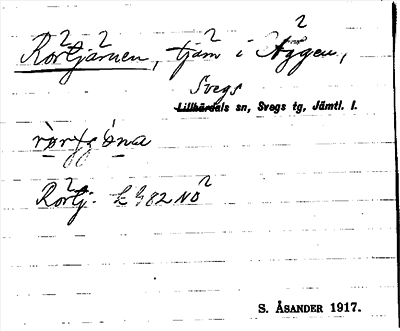 Rörtjärnen, tjärn i Äggen,
Svegs
Lillhärdals sn, Svegs tg, Jämtl. l.
Rörtj. L 482 NO
S. ÅSANDER 1917.